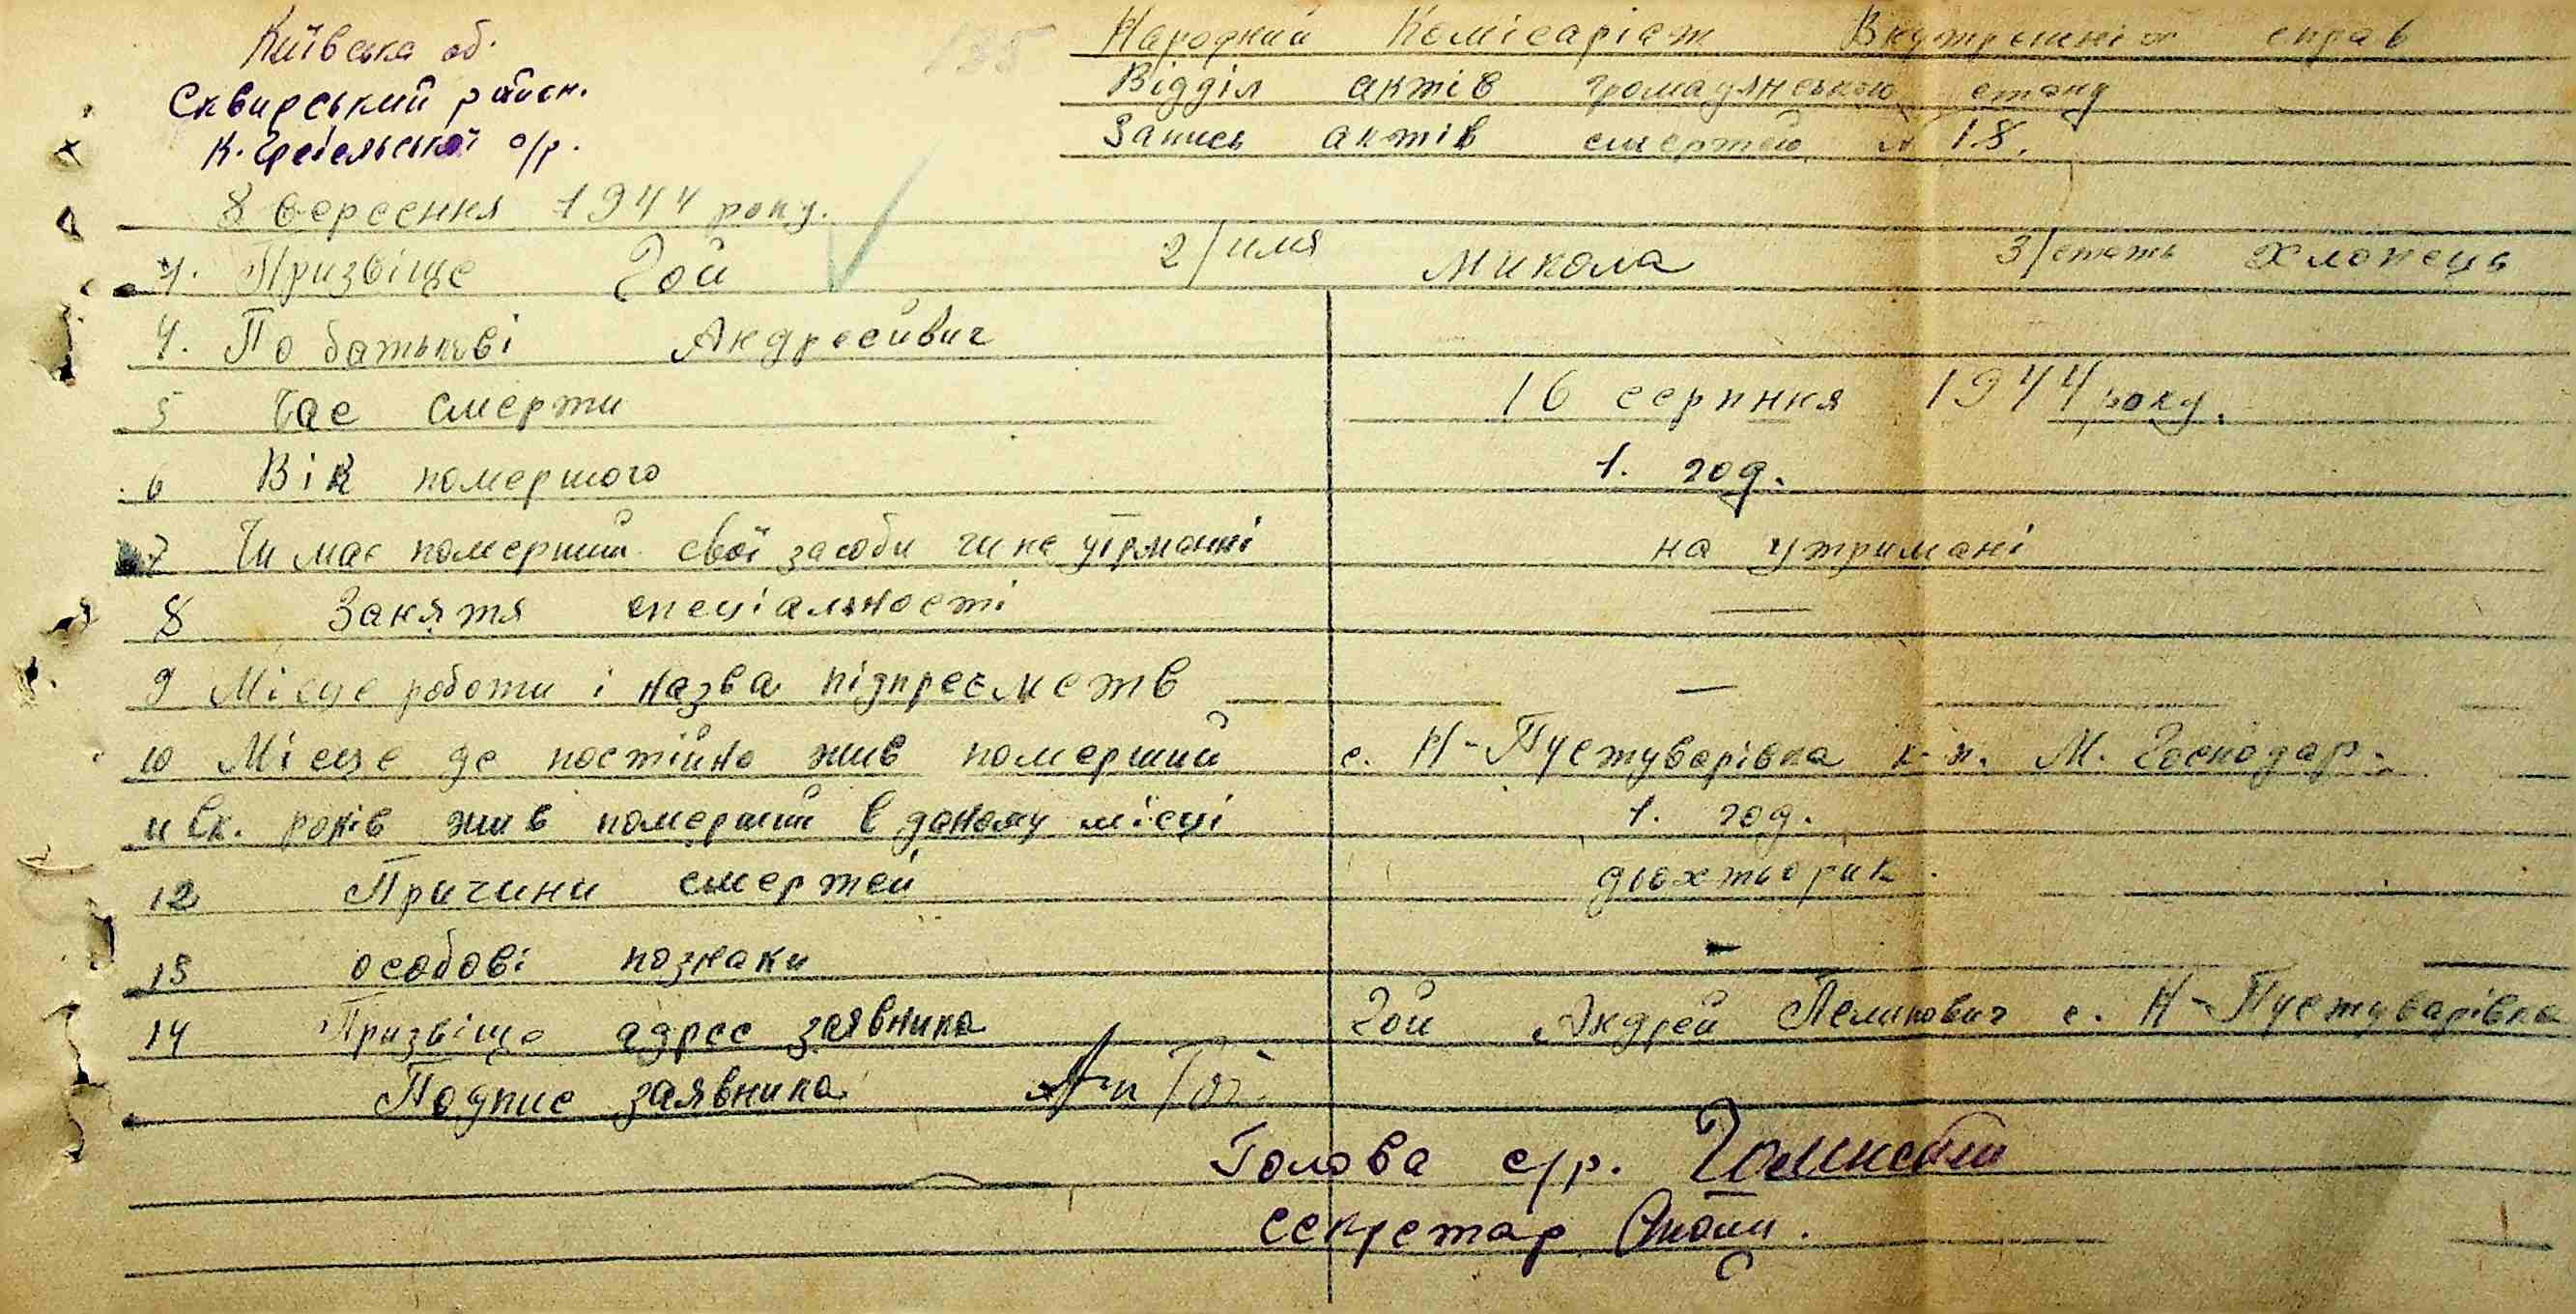 Київська об.
Сквирський район.
К. Гребельської с/р.
135
Народний Комісаріат Внутрішніх справ
Відділ актів громадянського стану
Запись актів смертей № 18.
8 вересння 1944 року.
1. Призвіще Гой 2/имя Микола 3/стать хлопець
4. По батькові Андреєйвич
5 Час смерти 16 серпння 1944 року.
6 Вік помершого 1. год.
7 Чи має померший свої засоби чи на утрманні на утримані
8 Заняття спеціальності —
9 Місце роботи і назва підпреємств —
10 Місце де постійно жив померший с. Н-Пустуварівка к-п. М. Господар.
11 Ск. років жив померший в даному місці 1. год.
12 Причини смертей дьохтьорик.
13 особові познаки -
14 Призвіще адрес заявника Гой Андрей с. Н-Пустуварівка
Подпис заявника Гой
Голова с/р.
секретар